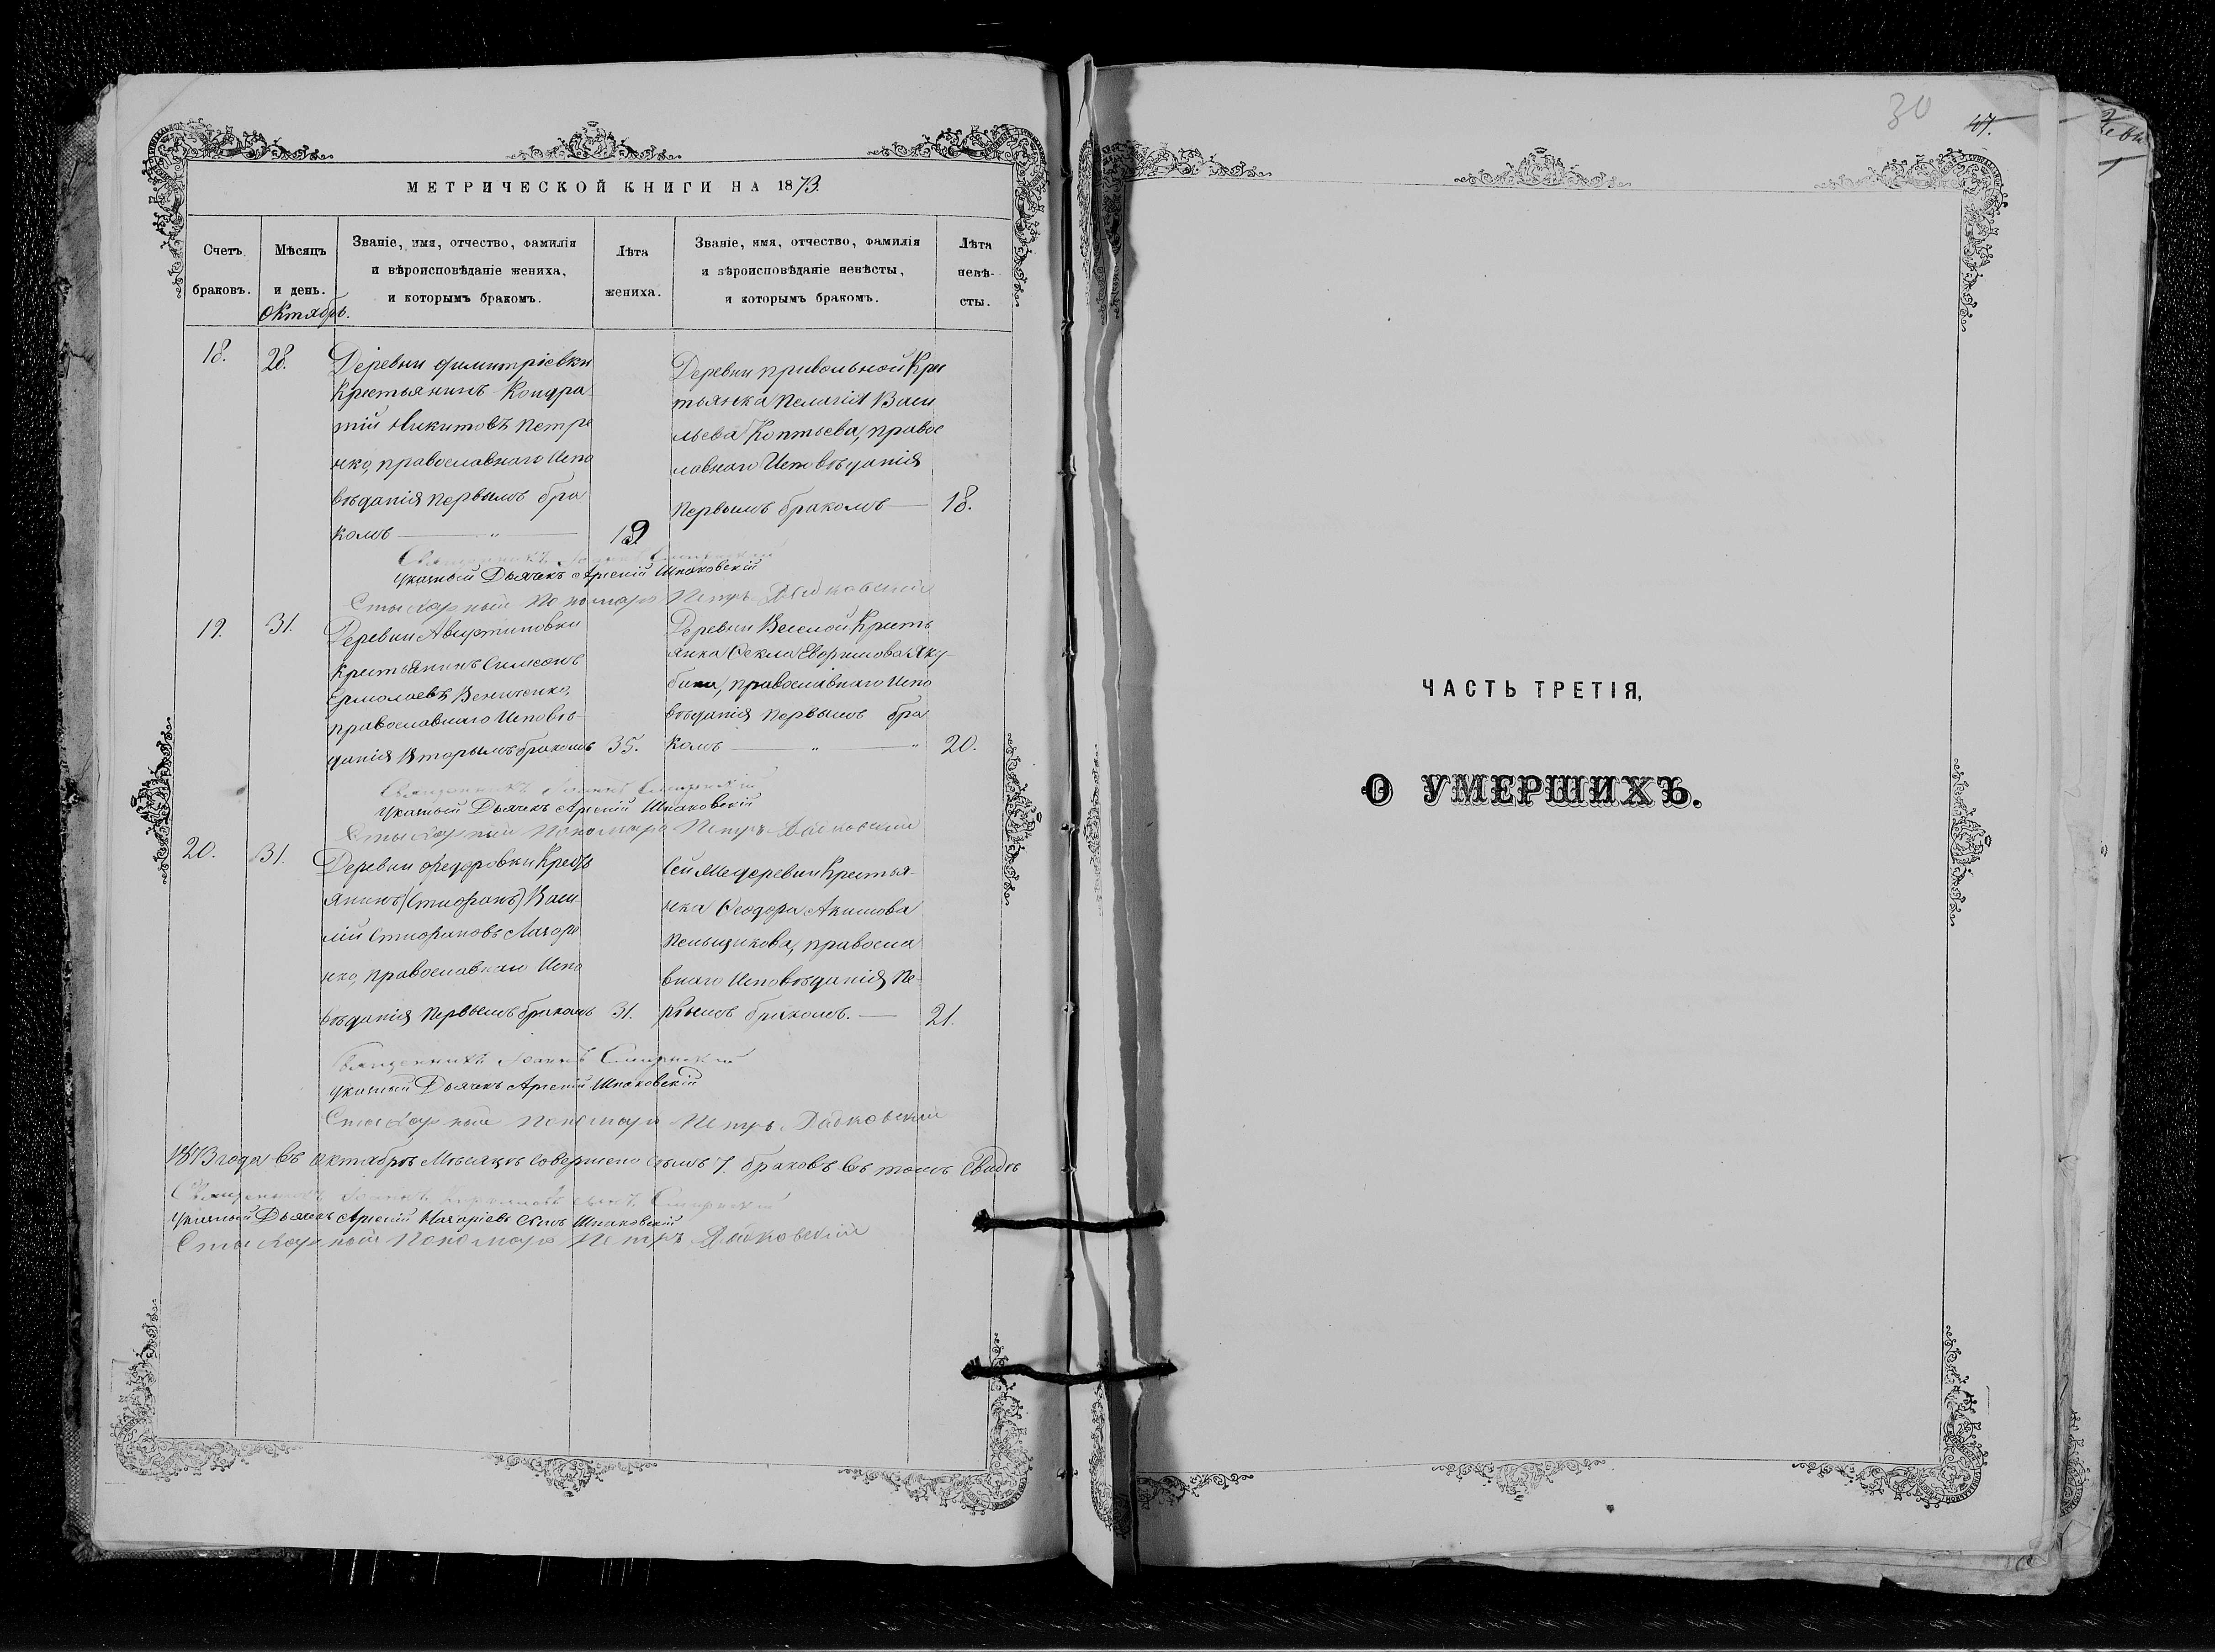 МЕТРИЧЕСКОЙ КНИГИ НА 1873.
Счетъ браковъ.
Мѣсяцъ и день.
Октябрь.
Званіе, имя, отчество, фамилія
и вѣроисповѣданіе жениха,
и которымъ бракомъ.
Лѣта
жениха.
Званіе, имя, отчество, фамилія
и вѣроисповѣданіе невѣсты,
и которымъ бракомъ.
Лѣта
невѣ-
сты.
18.
28.
Деревни Димитріевки
Крестьянинъ Кондра-
тій Никитовъ Петре
нко, православнаго Испо
вѣданія первымъ бра
комъ
19
Деревни Привольной Крес
тьянка Пелагія Васи
льева Коптьева, правос
лавнаго Исповѣданія
первымъ бракомъ
18.
Священникъ Іоаннъ
Указный Дьячекъ Арсеній Шпаковскій
Стихарный Пономарь Петръ
19.
31.
Деревни Августиновки
Крестьянинъ Симеонъ
Ермолаевъ
православнаго Исповѣ-
данія Вторымъ бракомъ
35.
Деревни Веселой Кресть
янка Ѳекла Евфимова Яку-
бина, православнаго Испо
вѣданія первымъ бра
комъ
20.
Священникъ Іоаннъ
Указный Дьячекъ Арсеній Шпаковскій
Стихарный Пономарь Петръ
20.
31.
Деревни Федоровки Кресть
янинъ (Стефанъ) Васи
лій Стефановъ Лазоре
нко, православнаго Испо
вѣданія первымъ бракомъ
31.
Сей же деревни Крестья-
нка Ѳеодора Акимова
Пельщикова, правосла
внаго Исповѣданія Пе-
рвымъ бракомъ.
21.
Священникъ Іоаннъ
Указный Дьячекъ Арсеній Шпаковскій
Стихарный Пономарь Петръ
1873 года въ Октябрѣ Мѣсяцѣ совершено семь 7. браковъ въ томъ Свидѣ
Священникъ Іоаннъ
Указный Дьячекъ Арсеній Назаріевъ Сынъ Шпаковскій
Стихарный Пономарь Петръ
30
47.
ЧАСТЬ ТРЕТІЯ,
О УМЕРШИХЪ.